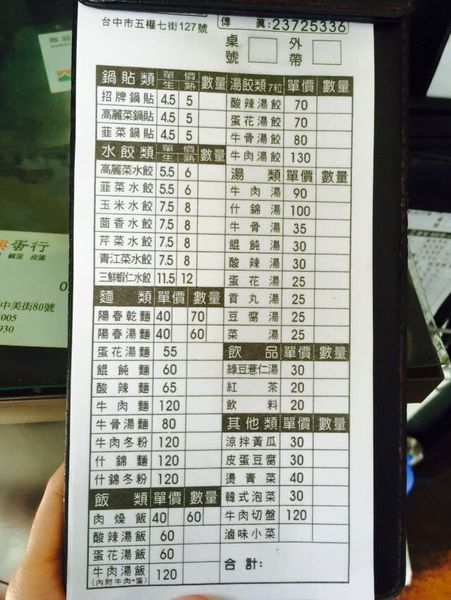 台中市五權七街127號
傳 真:23725336
桌號
外帶
鍋貼類 單價 生 熟 數量
招牌鍋貼 4.5 5
高麗菜鍋貼 4.5 5
韭菜鍋貼 4.5 5
水餃類 單價 生 熟 數量
高麗菜水餃 5.5 6
韭菜水餃 5.5 6
玉米水餃 7.5 8
茴香水餃 7.5 8
芹菜水餃 7.5 8
青江菜水餃 7.5 8
三鮮蝦仁水餃 11.5 12
麵 類 單價 數量
陽春乾麵 40 70
陽春湯麵 40 60
蛋花湯麵 55
餛飩麵 60
酸辣麵 65
牛肉麵 120
牛骨湯麵 80
牛肉冬粉 120
什錦麵 120
什錦冬粉 120
飯 類 單價 數量
肉燥飯 40 60
酸辣湯飯 60
蛋花湯飯 60
牛肉湯飯 120
(內附牛肉+蛋)
湯餃類7粒 單價 數量
酸辣湯餃 70
蛋花湯餃 70
牛骨湯餃 80
牛肉湯餃 130
湯 類 單價 數量
牛肉湯 90
什錦湯 100
牛骨湯 35
餛飩湯 30
酸辣湯 30
蛋花湯 25
貢丸湯 25
豆腐湯 25
菜湯 25
飲 品 單價 數量
綠豆薏仁湯 30
紅茶 20
飲料 20
其他類 單價 數量
涼拌黃瓜 30
皮蛋豆腐 30
燙青菜 40
韓式泡菜 30
牛肉切盤 120
滷味小菜
合計:
蛋行
鹹蛋 皮蛋
中美街80號
005
930